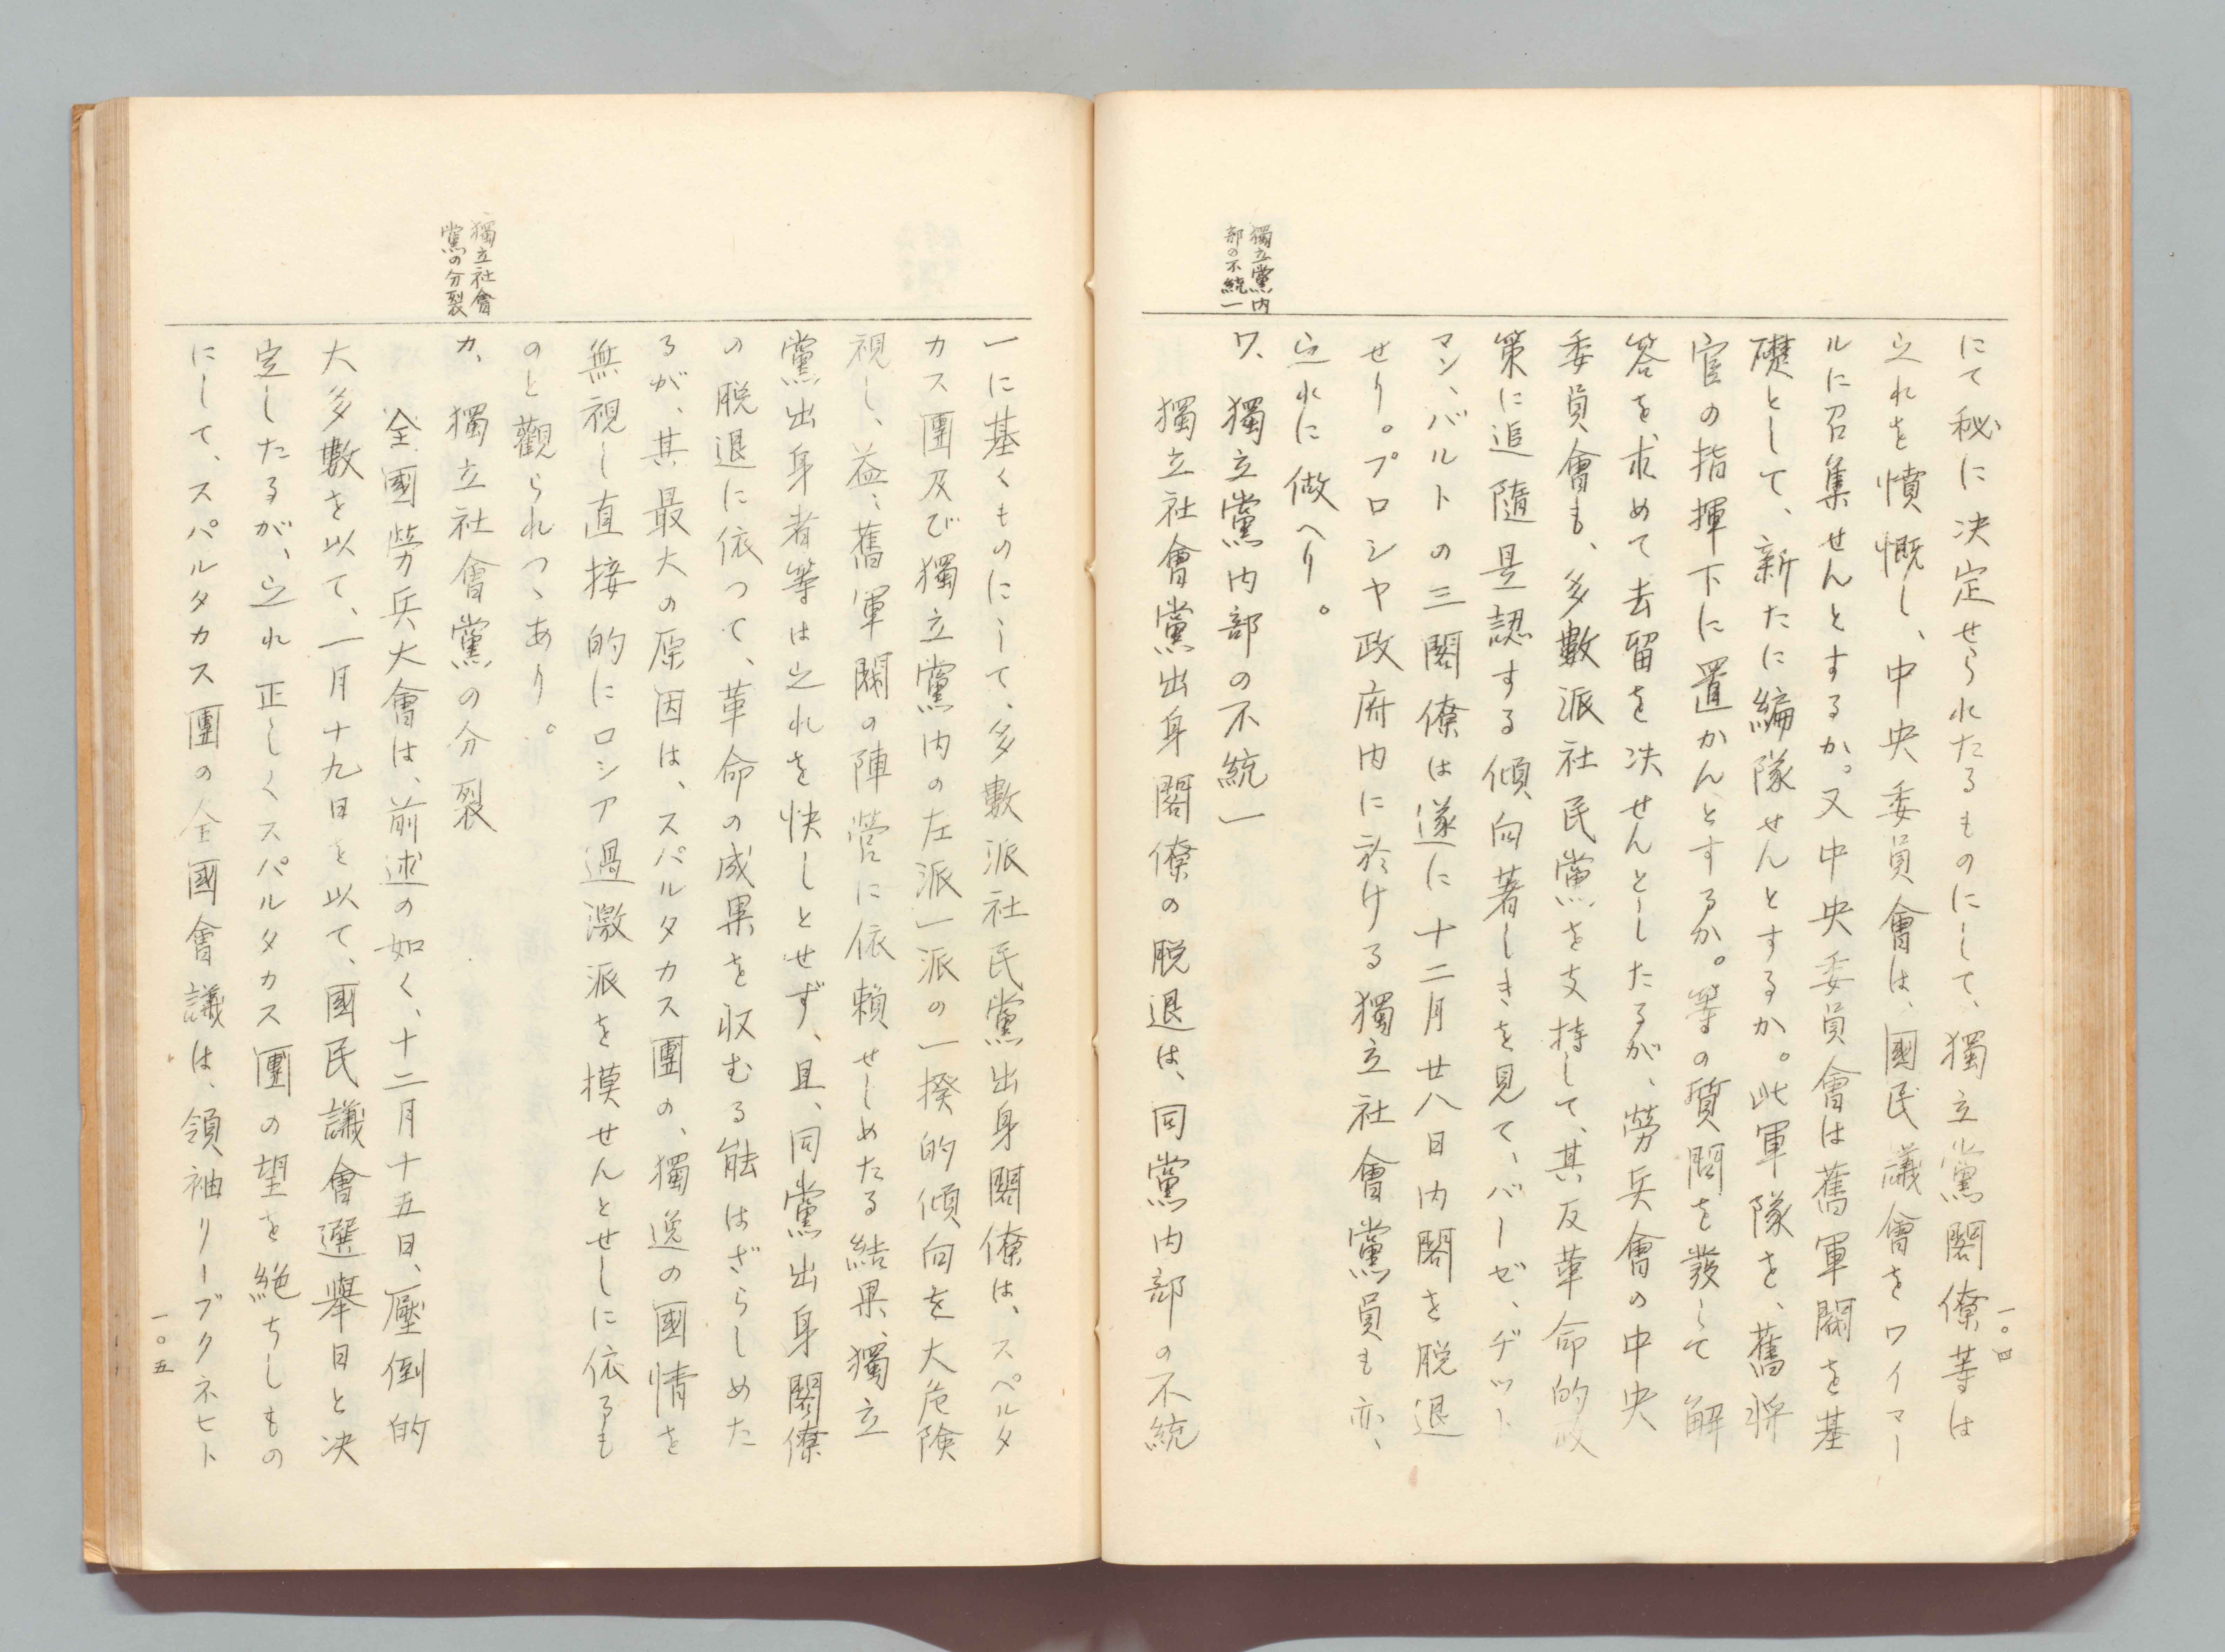 一〇四
獨立黨内
部の不統一
にて秘に決定せられたるものにして、獨立黨閣僚等は
之れを憤慨し、中央委員會は、國民議會をワイマー
ルに召集せんとするか。又中央委員會は舊軍閥を基
礎として、新たに編隊せんとするか。此軍隊を、舊將
官の指揮下に置かんとするか。等の質問を發して解
答を求めて去留を决せんとしたるが、勞兵會の中央
委員會も、多數派社民黨を支持して、其反革命的政
策に追隨是認する傾向著しきを見て、バーゼ、ヂット
マン、バルトの三閣僚は遂に十二月廿八日内閣を脱退
せり。プロシヤ政府内に於ける獨立社會黨員も亦、
之れに做へり。
ワ、獨立黨内部の不統一
獨立社會黨出身閣僚の脱退は、同黨内部の不統
獨立社會
黨の分裂
一に基くものにして、多數派社民黨出身閣僚は、スペルタ
カス團及び獨立黨内の左派一派の一揆的傾向を大危険
視し、益、舊軍閥の陣營に依頼せしめたる結果、獨立
黨出身者等は之れを快しとせず、且、同黨出身閣僚
の脱退に依つて、革命の成果を収むる能はざらしめた
るが、其最大の原因は、スパルタカス團の、獨逸の國情を
無視し直接的にロシア過激派を摸せんとせしに依るも
のと觀られつゝあり。
カ、獨立社會黨の分裂
全國勞兵大會は、前述の如く、十二月十五日、壓倒的
大多數を以て、一月十九日を以て、國民議會選擧日と决
定したるが、之れ正しくスパルタカス團の望を絶ちしもの
にして、スパルタカス團の全國會議は、領袖リーブクネヒト
一〇五